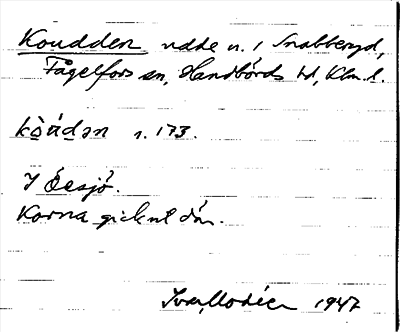 Koudden udde n. i Snabberyd,
Fågelfors sn, Handbörds hd, Klm. l.
kòu̇dən s. 173.
I Öesjö.
Korna gick ut där.
Ivar Modéer 1947